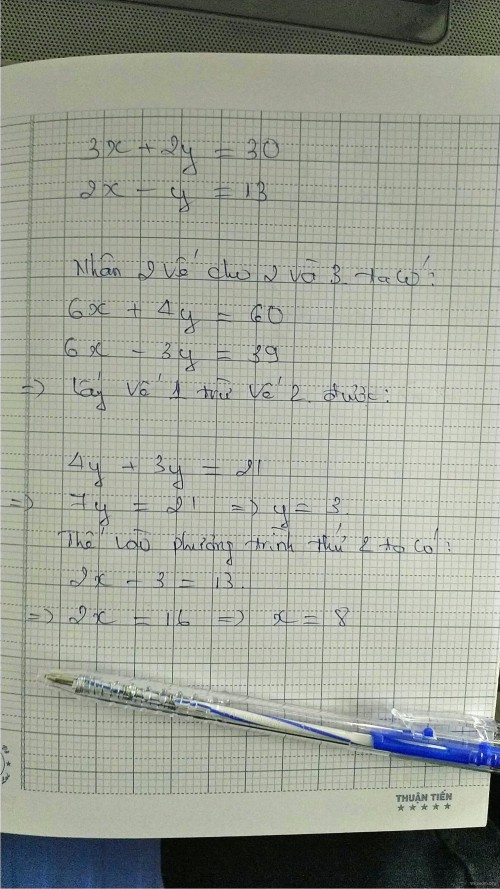 3x + 2y = 30
2x - y = 13
Nhân 2 vế cho 2 và 3. ta có:
6x + 4y = 60
6x - 3y = 39
=> lấy vế 1 trừ vế 2. được:
4y + 3y = 21
=> 7y = 21 => y = 3.
Thế vào phương trình thứ 2 ta có:
2x - 3 = 13.
=> 2x = 16 => x = 8
THUẬN TIẾN
★★★★★